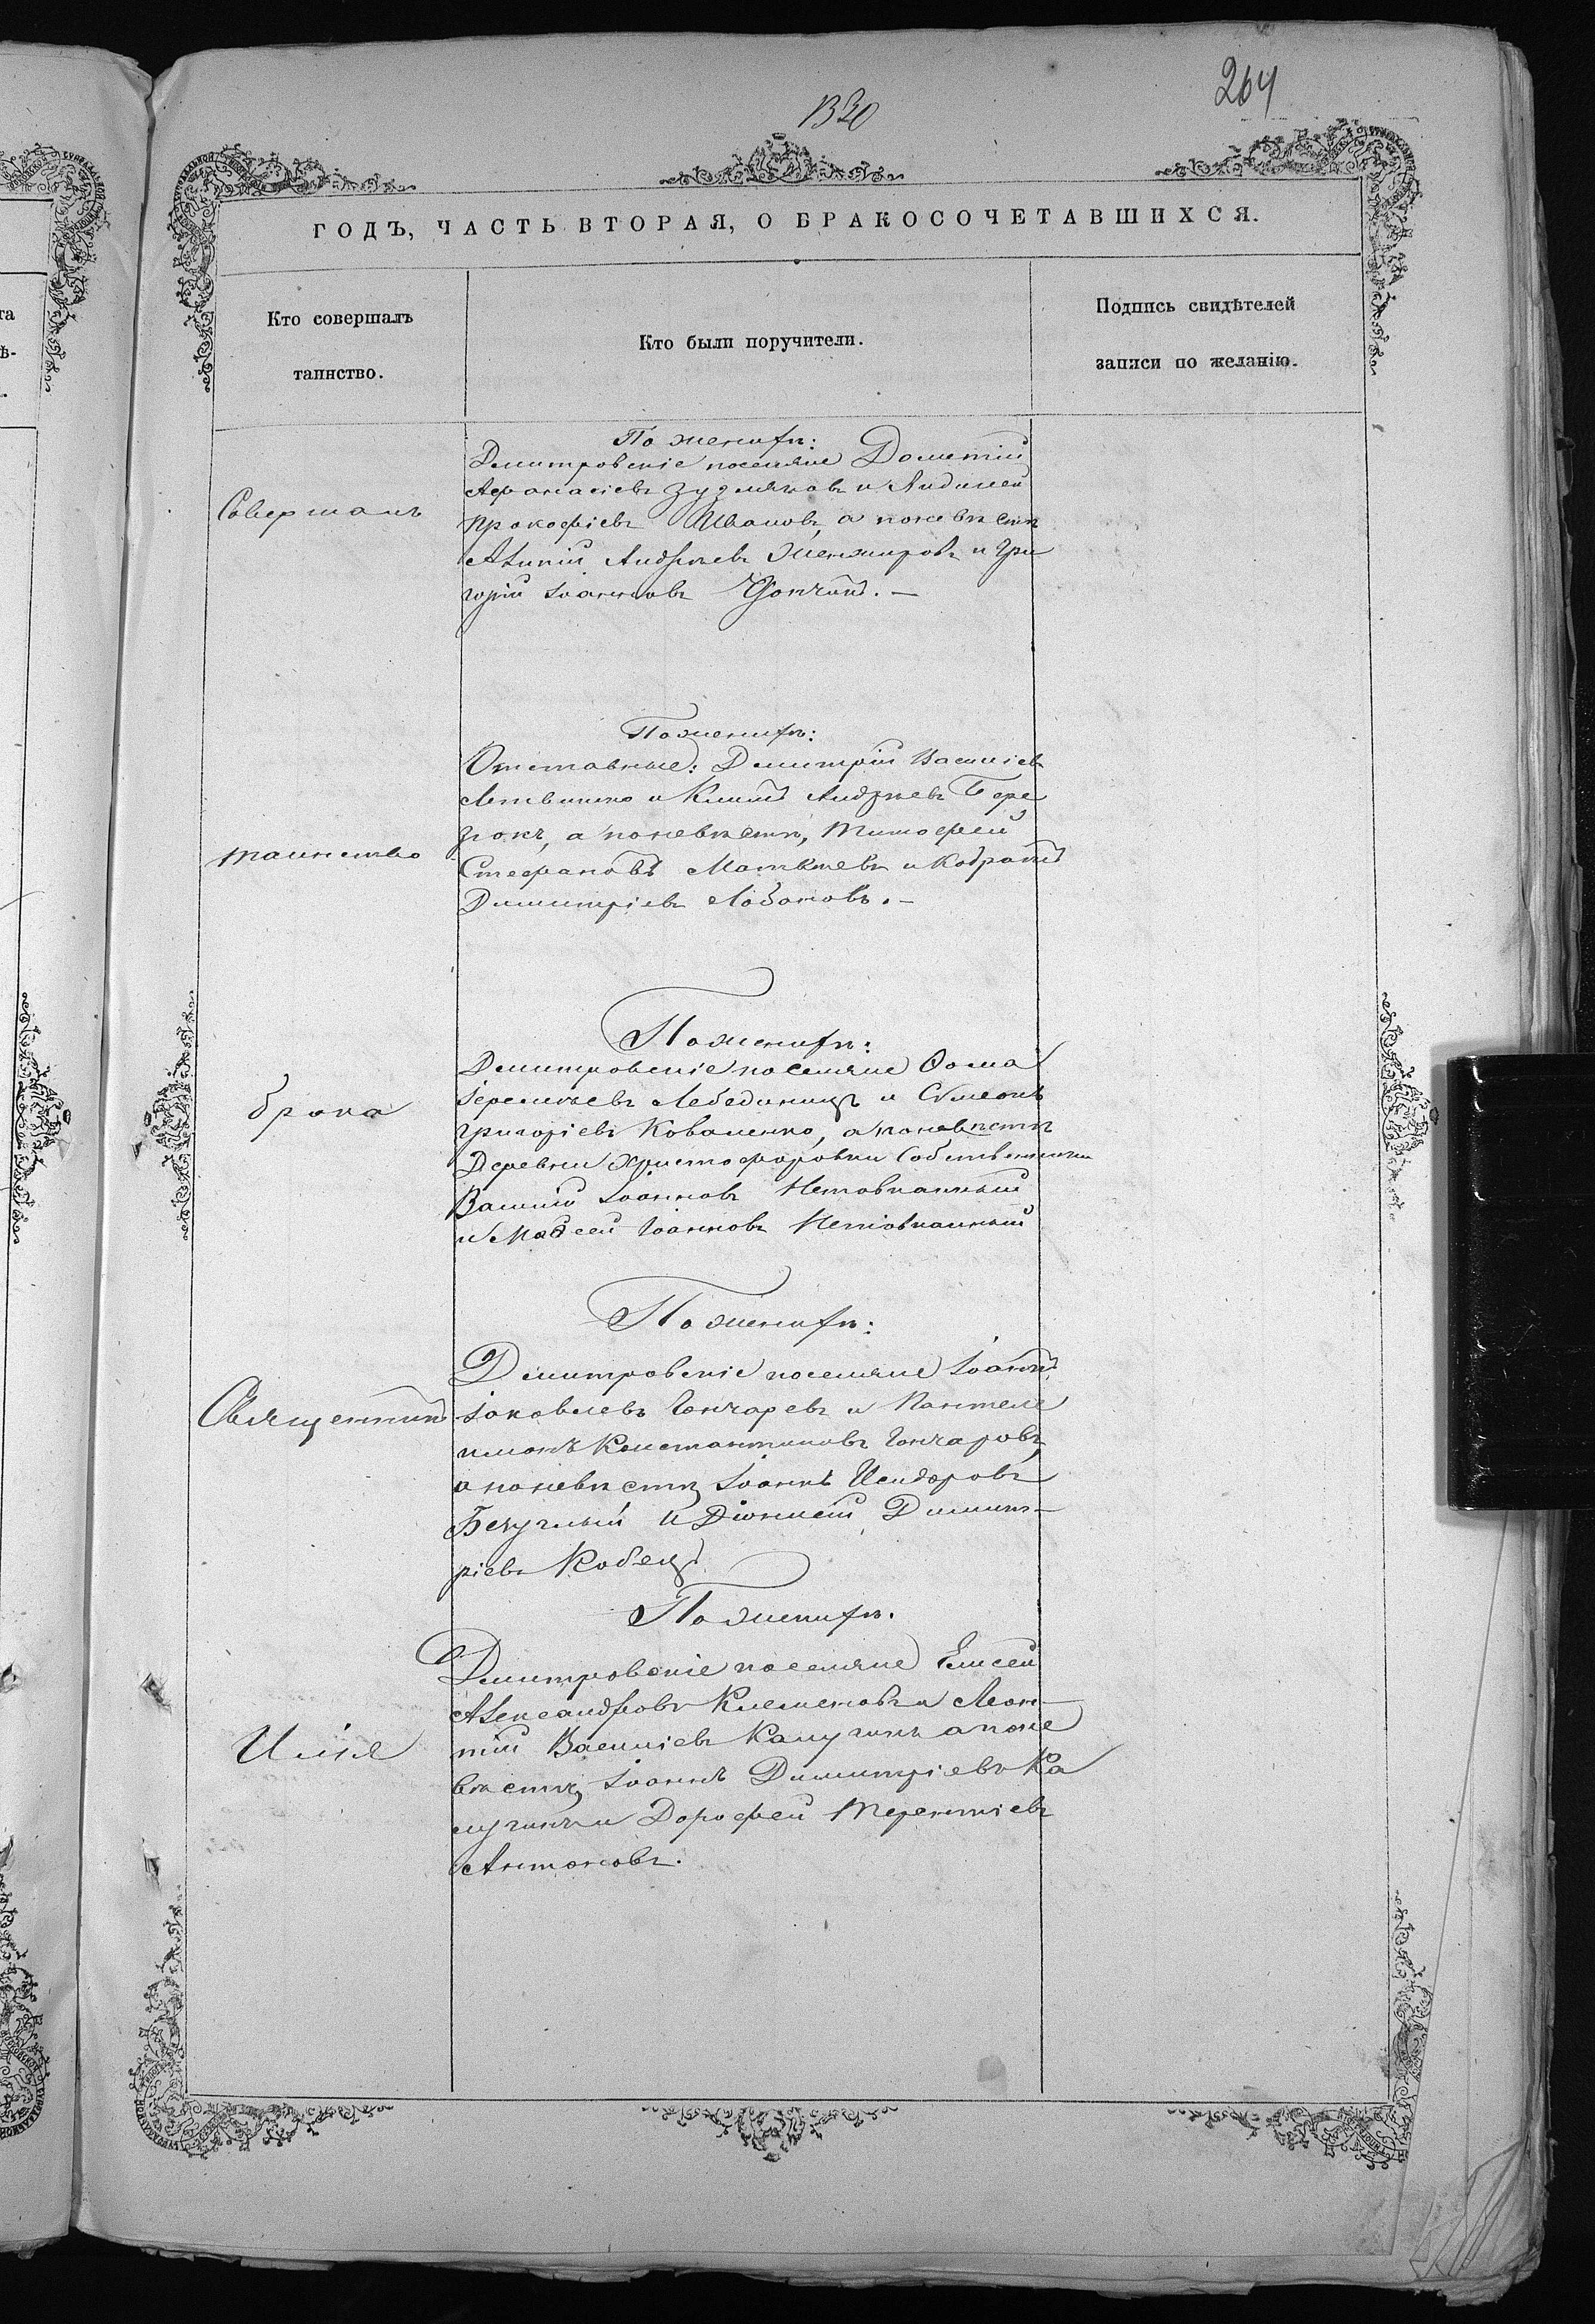 264
ГОДЪ, ЧАСТЬ ВТОРАЯ, О БРАКОСОЧЕТАВШИХСЯ.
Кто совершалъ
таинство.
Кто были поручители.
Подпись свидѣтелей
записи по желанію.
Совершалъ
таинство
брака
Священникъ
Илія
По женихѣ:
Дмитровскіе поселяне Дометій
Афанасіевъ и Андрей
Прокофіевъ Ивановъ, а по невѣстѣ
Андреевъ и Гри
горій Іоанновъ
По женихѣ:
Отставные: Димитрій Василіевъ
Литвинко и Климъ Андреевъ Бере
зокъ, а по невѣстѣ, Тимофей
Стефановъ Матвѣевъ и Кодратъ
Димитріевъ Лобановъ.
По женихѣ:
Дмитровскіе поселяне Ѳома
Іереміевъ Лебединецъ и Сѵмеонъ
Григоріевъ Коваленко, а по невѣстѣ
Деревни Христофоровки Собственники
Василій Іоанновъ
и Моѵсей Іоанновъ
По женихѣ:
Дмитровскіе поселяне Іоаннъ
Іаковлевъ Гончаревъ и Пантеле
имонъ Константиновъ Гончаровъ,
а по невѣстѣ Іоаннъ Исидоровъ
и Діонисій Димит-
ріевъ Кобецъ
По женихѣ.
Дмитровскіе поселяне Елисей
Александровъ Клеменовъ и Леон-
тій Василіевъ Калугинъ а по не
вѣстѣ, Іоаннъ Димитріевъ Ка
лугинъ и Дорофей Терентіевъ
Антоновъ.